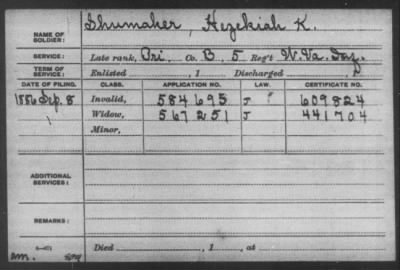 NAME OF SOLDIER: Shumaker, Hezekiah K.
SERVICE: Late rank, Pri, Co. B, 5 Reg't W.Va. Inf.
TERM OF SERVICE: Enlisted , 1 Discharged , 1
DATE OF FILING. CLASS. APPLICATION NO. LAW. CERTIFICATE NO.
1886 Sep. 8 Invalid, 584695 J 609824
Widow, 567251 J 441704
Minor,
ADDITIONAL SERVICES:
REMARKS:
Died , 1 , at